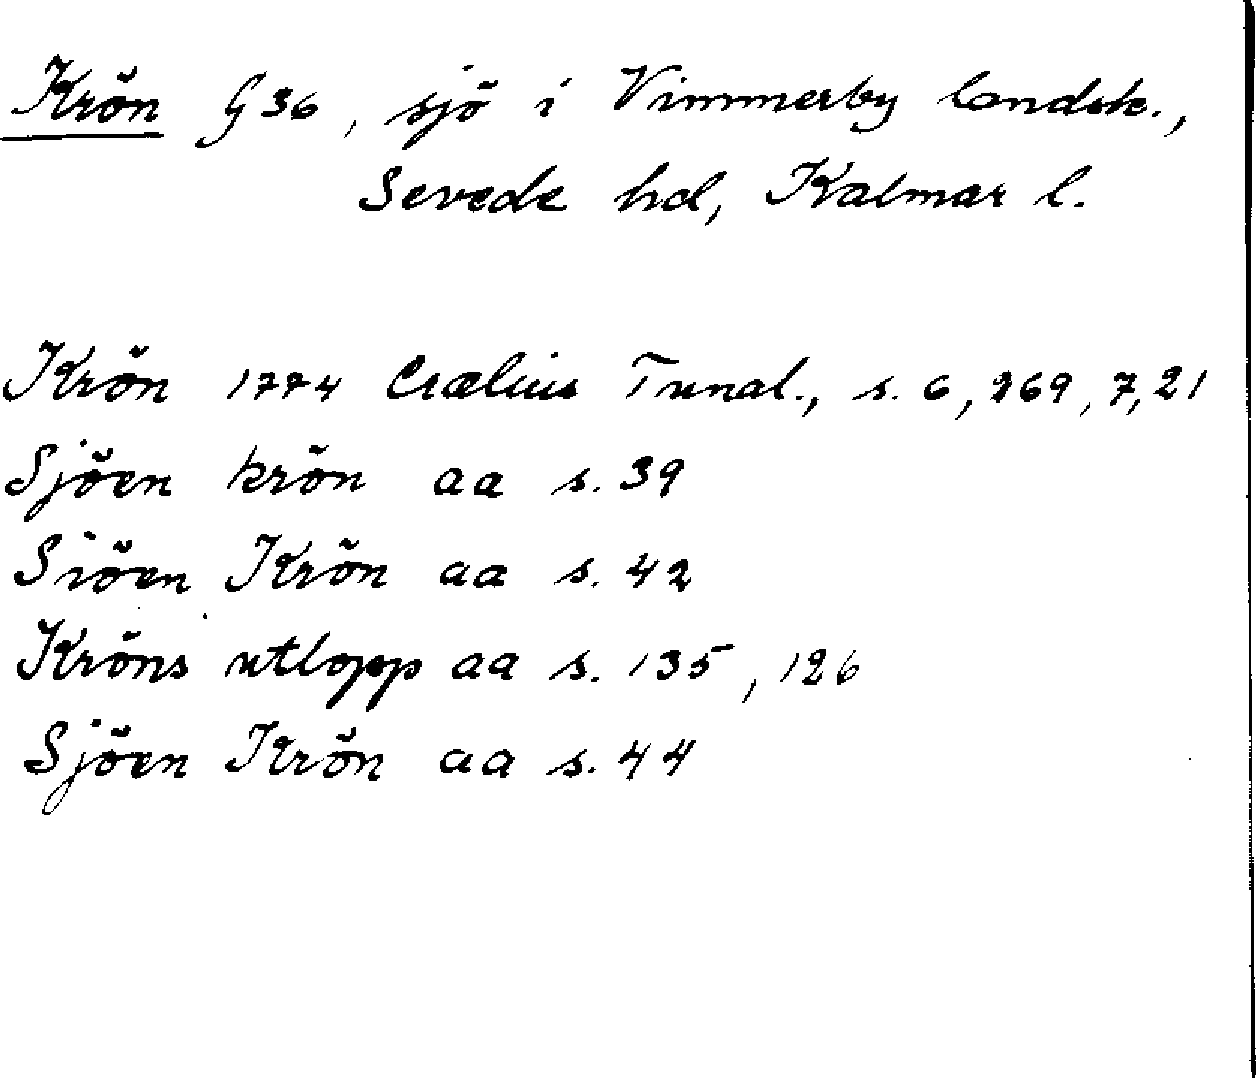 Krön G36, sjö i Vimmerby landsk.,
Sevede hd, Kalmar l.
Krön 1774 Crælius Tunal., s. 6, 269, 7, 21
Sjöen krön aa s. 39
Siöen Krön aa s. 42
Kröns utlopp aa s. 135, 126
Sjöen Krön aa s. 44